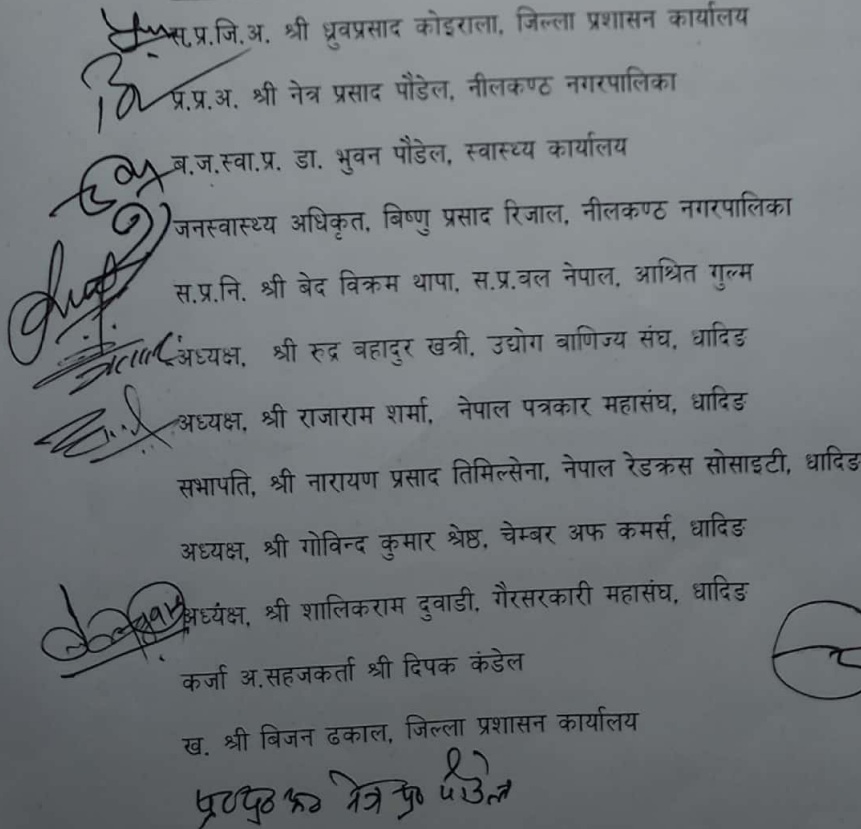 स.प्र.जि.अ. श्री ध्रुवप्रसाद कोइराला, जिल्ला प्रशासन कार्यालय
प्र.प्र.अ. श्री नेत्र प्रसाद पौडेल, नीलकण्ठ नगरपालिका
ब.ज.स्वा.प्र. डा. भुवन पौडेल, स्वास्थ्य कार्यालय
जनस्वास्थ्य अधिकृत, बिष्णु प्रसाद रिजाल, नीलकण्ठ नगरपालिका
स.प्र.नि. श्री बेद विक्रम थापा, स.प्र.वल नेपाल, आश्रित गुल्म
अध्यक्ष, श्री रुद्र बहादुर खत्री, उद्योग वाणिज्य संघ, धादिङ
अध्यक्ष, श्री राजाराम शर्मा, नेपाल पत्रकार महासंघ, धादिङ
सभापति, श्री नारायण प्रसाद तिमिल्सेना, नेपाल रेडक्रस सोसाइटी, धादिङ
अध्यक्ष, श्री गोविन्द कुमार श्रेष्ठ, चेम्बर अफ कमर्स, धादिङ
अध्यंक्ष, श्री शालिकराम दुवाडी, गैरसरकारी महासंघ, धादिङ
कर्जा अ.सहजकर्ता श्री दिपक कंडेल
ख. श्री बिजन ढकाल, जिल्ला प्रशासन कार्यालय
नेत्र प्र० पौडेल